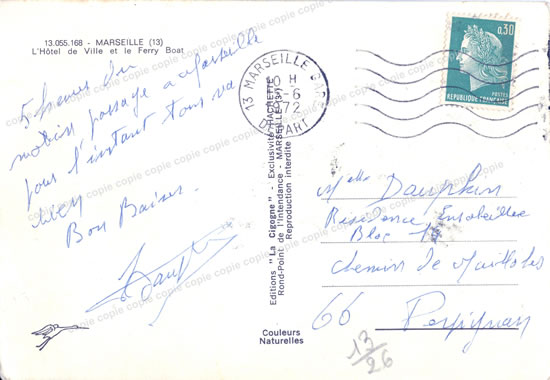 13.055.168 - MARSEILLE (13)
L'Hôtel de Ville et le Ferry Boat
5 heures du
passage a Marseille
pour l'instant tous va
bien
Bon Baiser
copie copie copie copie copie copie
13 MARSEILLE
H
-6
1972
DEPART
0,30
POSTES
REPUBLIQUE FRANÇAISE
Editions "La Cigogne" Exclusivité HACHETTE
Rond-Point de l'Intendance - MARSEILLE
Reproduction Interdite
Couleurs
Naturelles
Melle Dauphin
Résidence
Bloc
chemin de
66 Perpignan
13/26